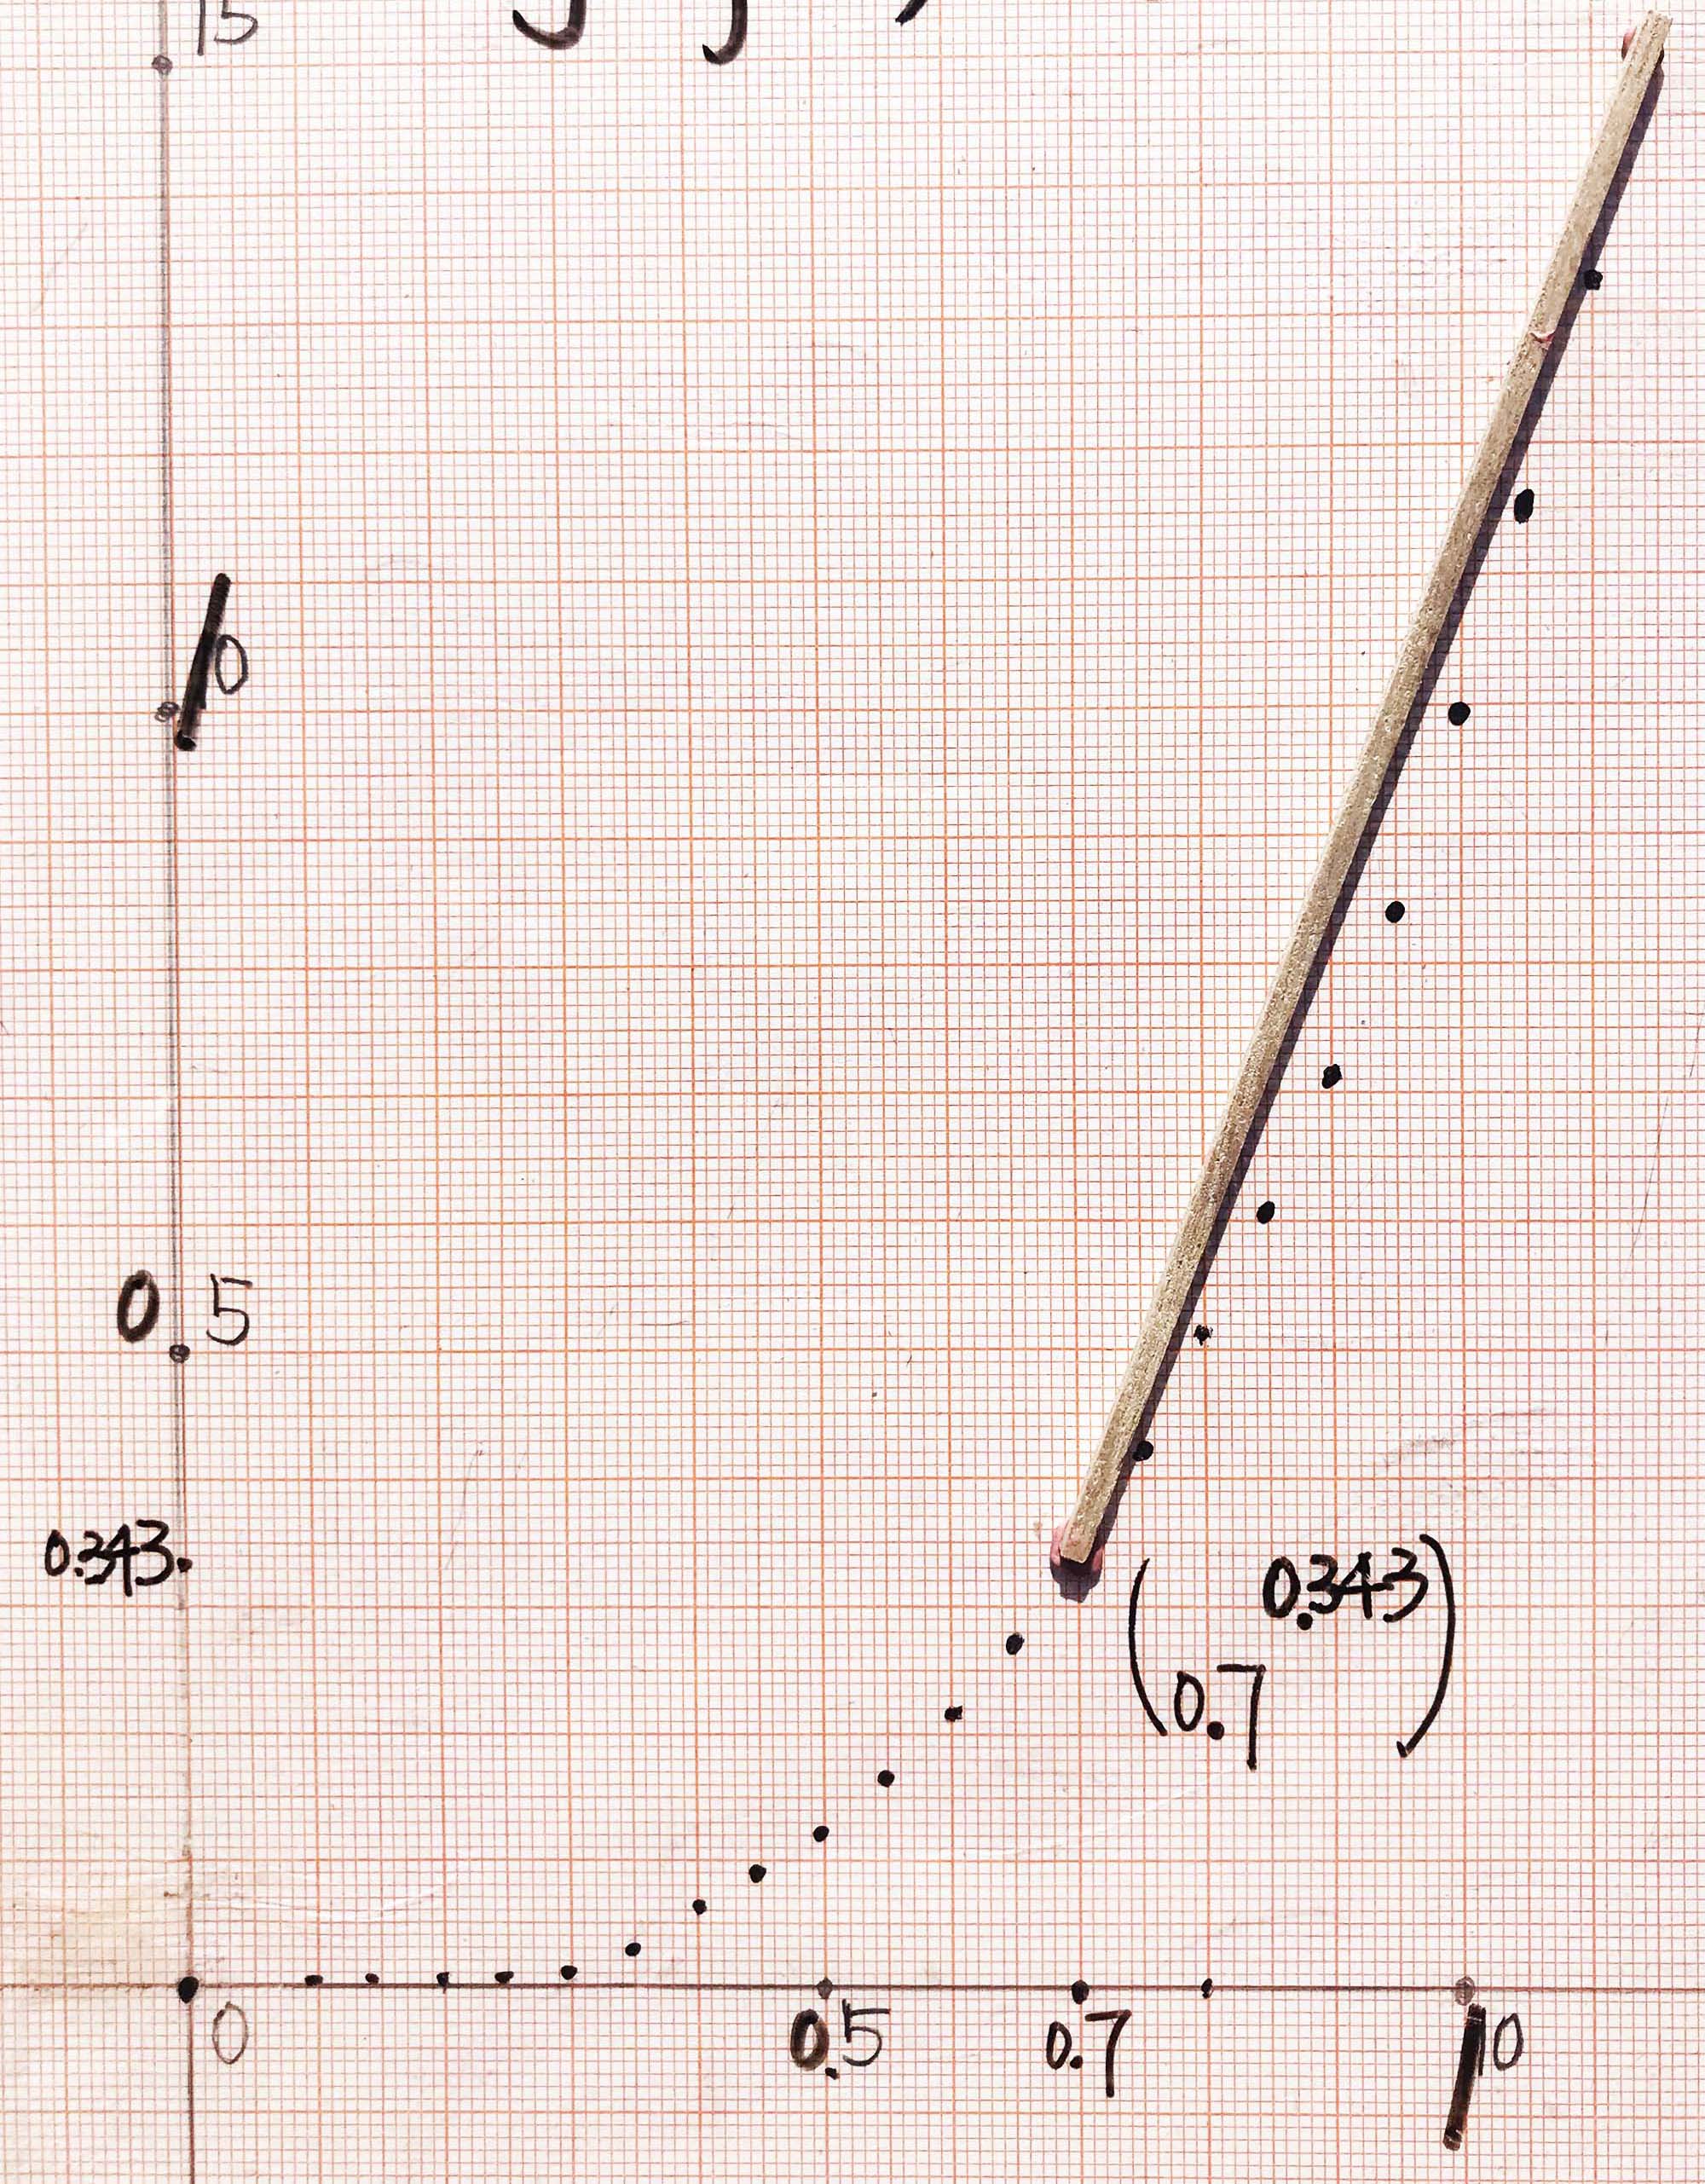 15
10
0 5
0.343.
0.343
0.7
0
0.5
0.7
10